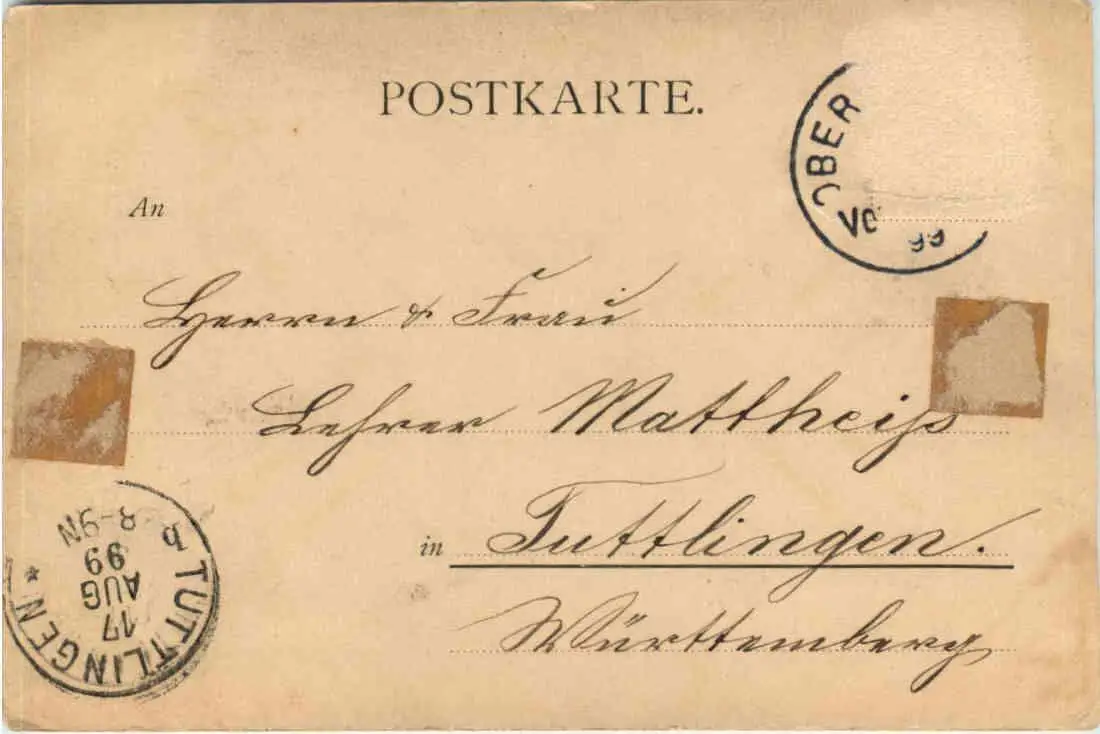 POSTKARTE.
OBER
VO
99
An
Herrn & Frau
Lehrer Mattheiß
in Tuttlingen.
Württemberg
TUTTLINGEN *
17
AUG
99
8-9N